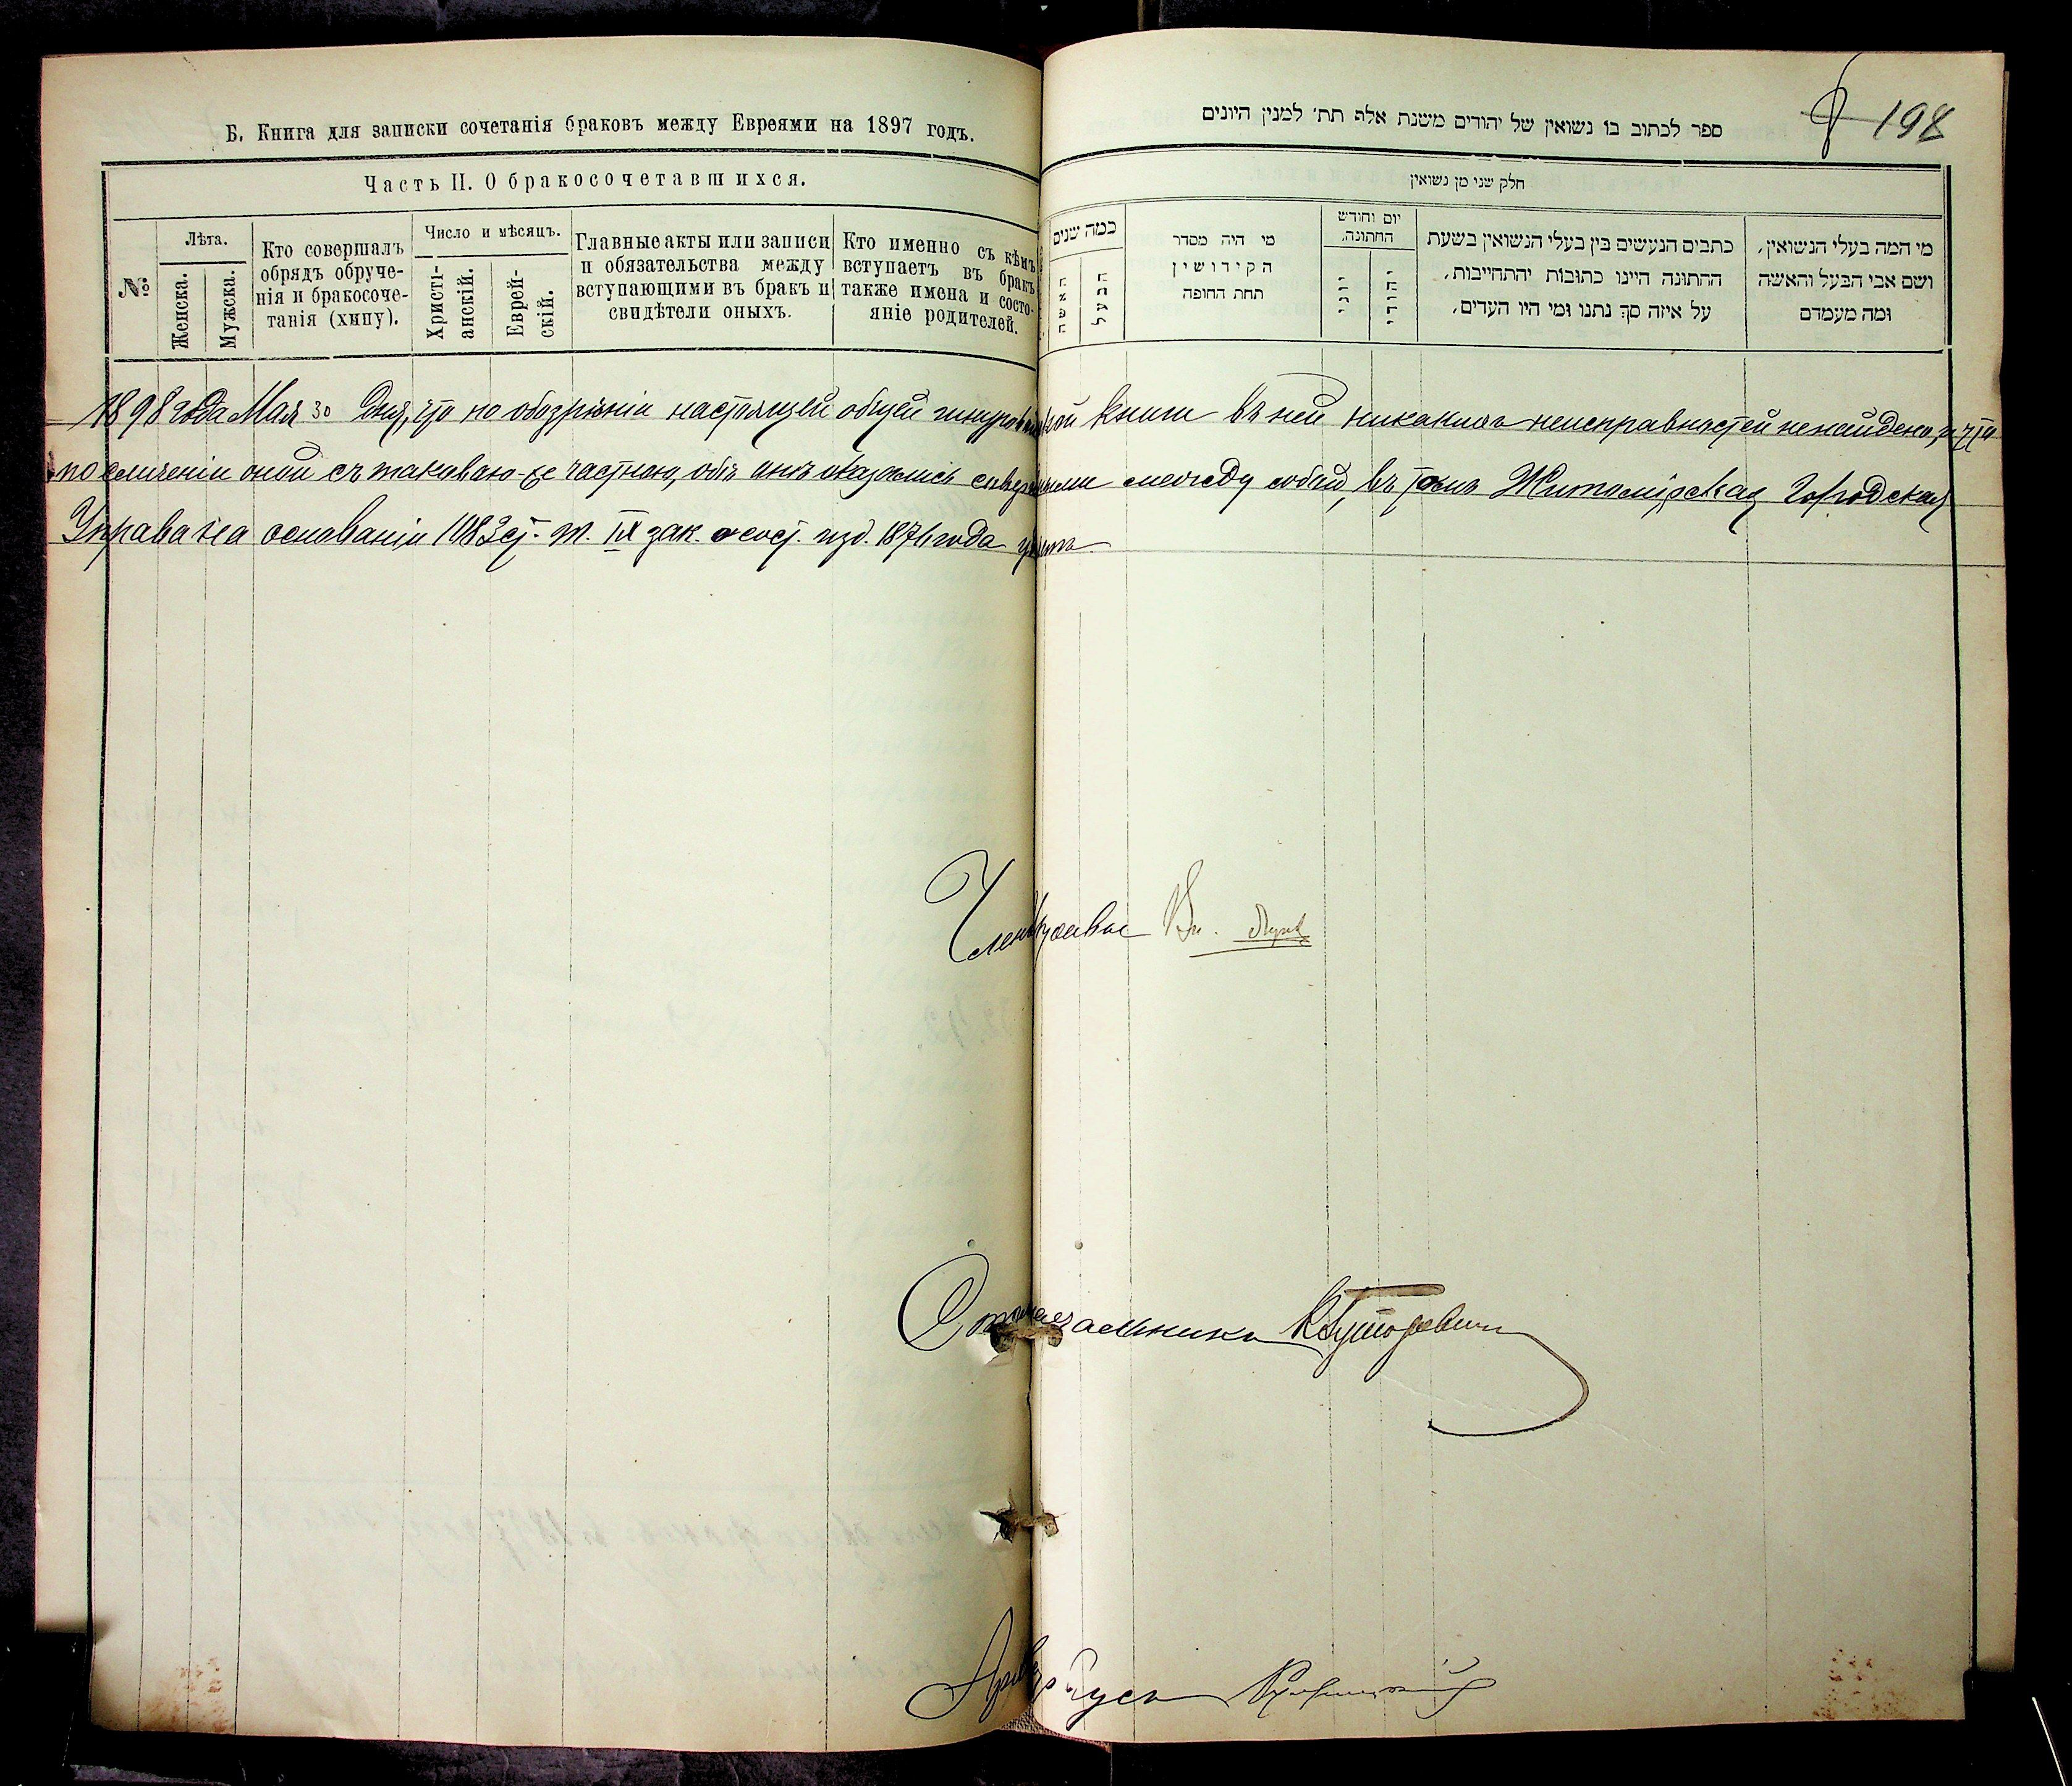 Б. Книга для записки сочетанія браковъ между Евреями на 1897 годъ.
Часть II. О бракосочетавшихся.
№
Лѣта.
Женска.
Мужска.
Кто совершалъ
обрядъ обруче-
нія и бракосоче-
танія (хипу).
Число и мѣсяцъ.
Христі-
анскій.
Еврей-
скій.
Главные акты или записи
и обязательства между
вступающими въ брак и
свидѣтели оныхъ.
Кто именно съ кѣмъ
вступаетъ въ бракъ
также имена и состо-
яніе родителей.
198
ספר לכתוב בו נשואין של יהודים משנת אלף תת׳ למנין היונים
חלק שני מן נשואין
כמה שנים
האשה
הבעל
מי היה מסדר
הקידושין
תחת החופה
יום וחודש
החתונה.
יוני
יהודי
כתבים הנעשים בין בעלי הנשואין בשעת
ההתונה היינו כתובות יהתחייבות,
על איזה סך נתנו ומי היו העדים,
מי המה בעלי הנשואין,
ושם אבי הבעל והאשה
ומה מעמדם
1898 года Мая 30 дня, что по обозрѣніи настоящей общей шнуровой книги въ ней никакихъ неисправностей ненайдено, и что
по сличеніи оной съ таковою-же частною, обѣ онѣ оказались сходными между собой, въ томъ Житомірская Городская
Управа на основаніи 1083 ст. т. IX зак. о сост. изд. 1876 года
Членъ Управы
Столоначальникъ